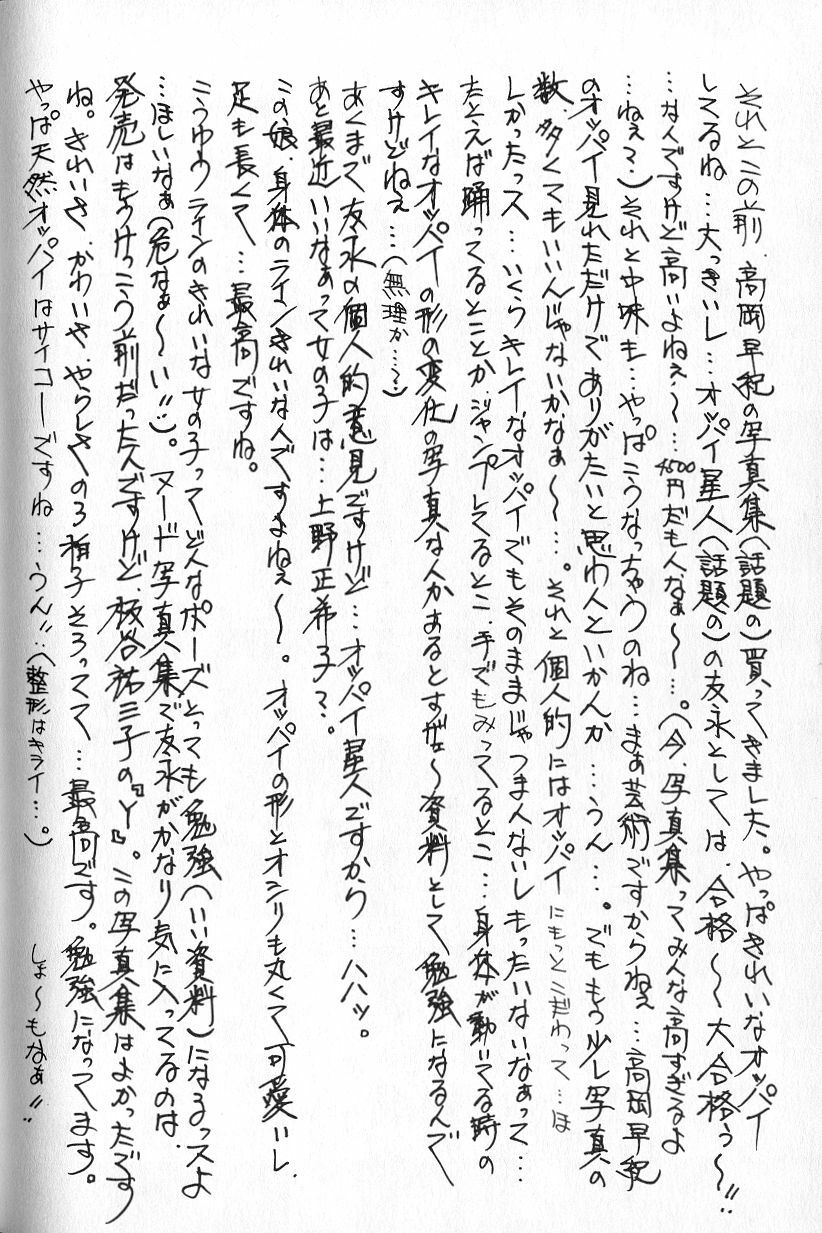 それとこの前、高岡早紀の写真集(話題の)買ってきました。やっぱきれいなオッパイ
してるね…大っきいし…オッパイ星人(話題の)の友永としては、合格〜〜大合格ぅ〜〜!!
…なんですけど高いよねぇ〜〜…4500円だもんなぁ〜〜…。(今、写真集ってみんな高すぎるよ
…ねぇ?)それと中味も…やっぱこうなっちゃうのね…まぁ芸術ですからねぇ…高岡早紀
のオッパイ見れただけでありがたいと思わんといかんか…うん…。でももう少し写真の
数、多くてもいいんじゃないかなぁ〜〜…。それと個人的にはオッパイにもっとこだわって…ほ
しかったっス…いくらキレイなオッパイでもそのままじゃつまんないしもったいないなぁって…
たとえば踊ってるとことか、ジャンプしてるとこ、手でもみってるとこ…身体が動いてる時の
キレイなオッパイの形の変化の写真なんかあるとすげェ〜資料として勉強になるんで
すけどねぇ…(無理か…?)
あくまで友永の個人的意見ですけど…オッパイ星人ですから…ハハッ。
あと最近いいなぁって女の子は…上野正希子?。
この娘、身体のラインきれいなんですよねぇ〜〜。オッパイの形とオシリも丸くて可愛いし、
足も長くて…最高ですね。
こうゆうラインのきれいな女の子ってどんなポーズとっても勉強(いい資料)になるっスよ
…ほしいなぁ(危なぁ〜〜い!!)。ヌード写真集で友永がかなり気に入ってるのは、
発売はもうけっこう前だったんですけど、板谷祐三子の『Y』。この写真集はよかったです
ね。きれいさ、かわいさ、やらしさの3拍子そろってて…最高です。勉強になってます。
やっぱ天然オッパイはサイコーですね…うん!!(整形はキライ…。) しょ〜もなぁ!!